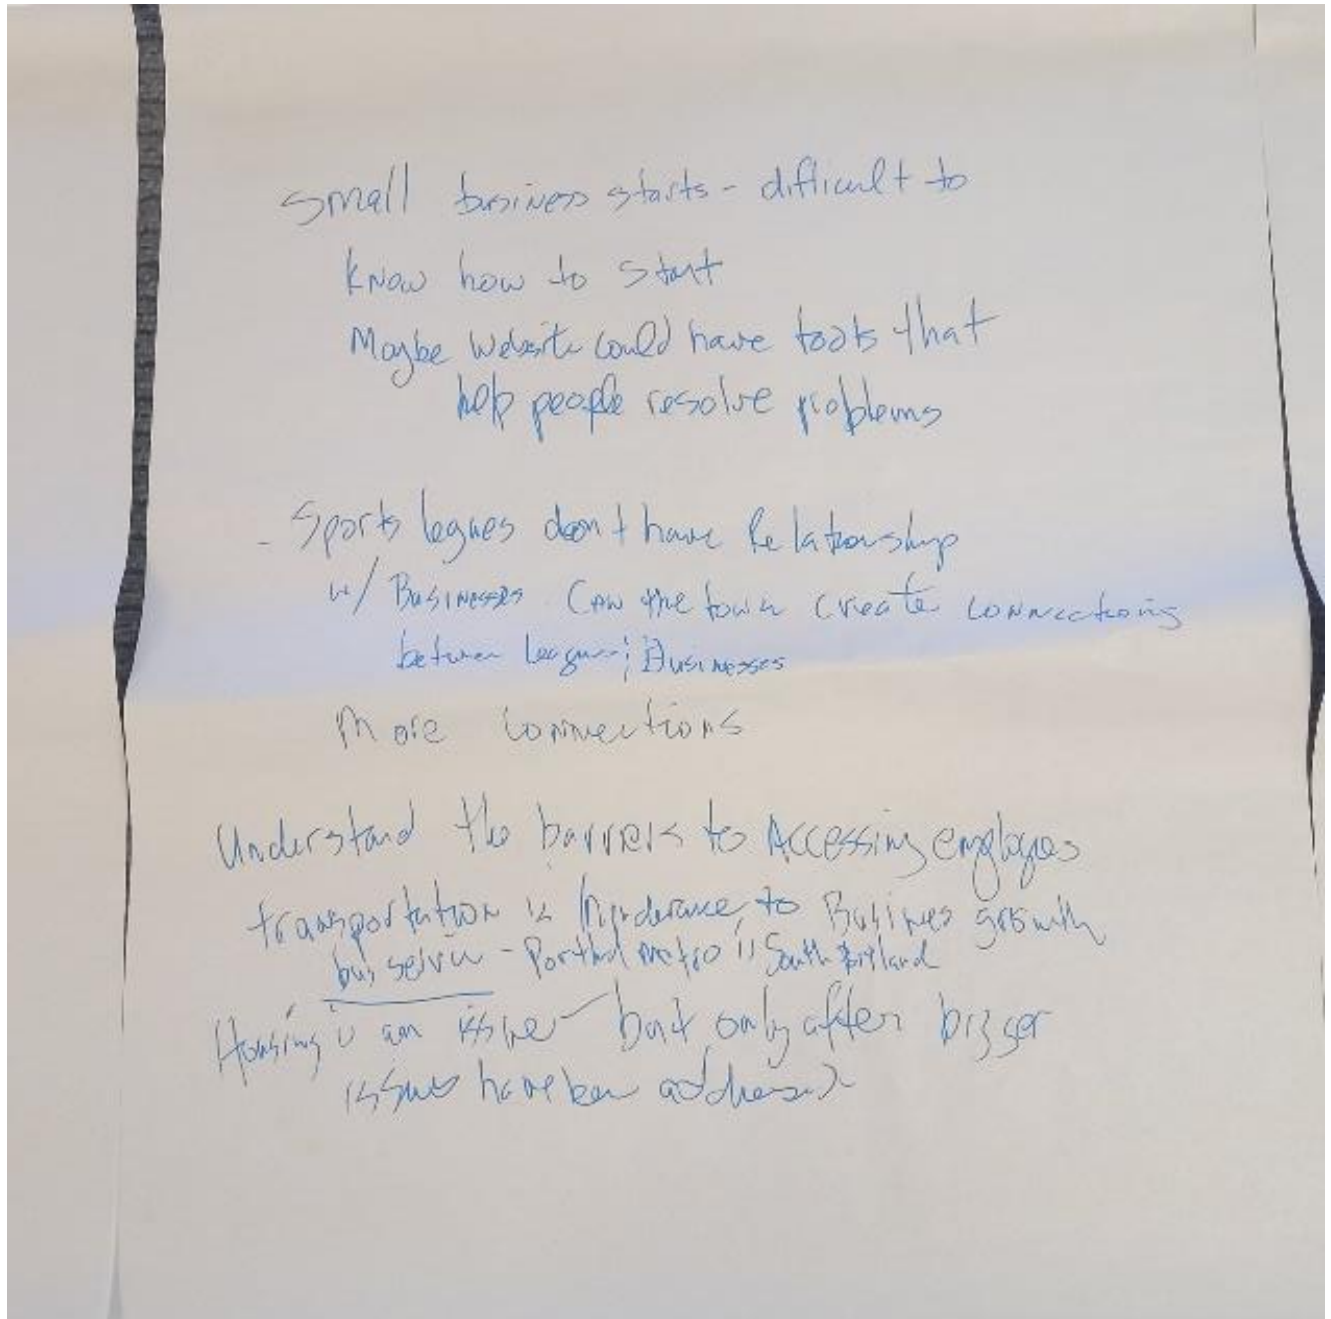 Small business starts - difficult to
know how to start
Maybe website could have tools that
help people resolve problems
- Sports legues don't have Relationship
w/ Businesses. Can the town create connections
between league ; Businesses
More connections
Understand the barriers to Accessing employees
transportation is hinderance, to Business growth
bus service - Portland metro South Portland
Housing is an issue - but only after bigger
issues have been addressed